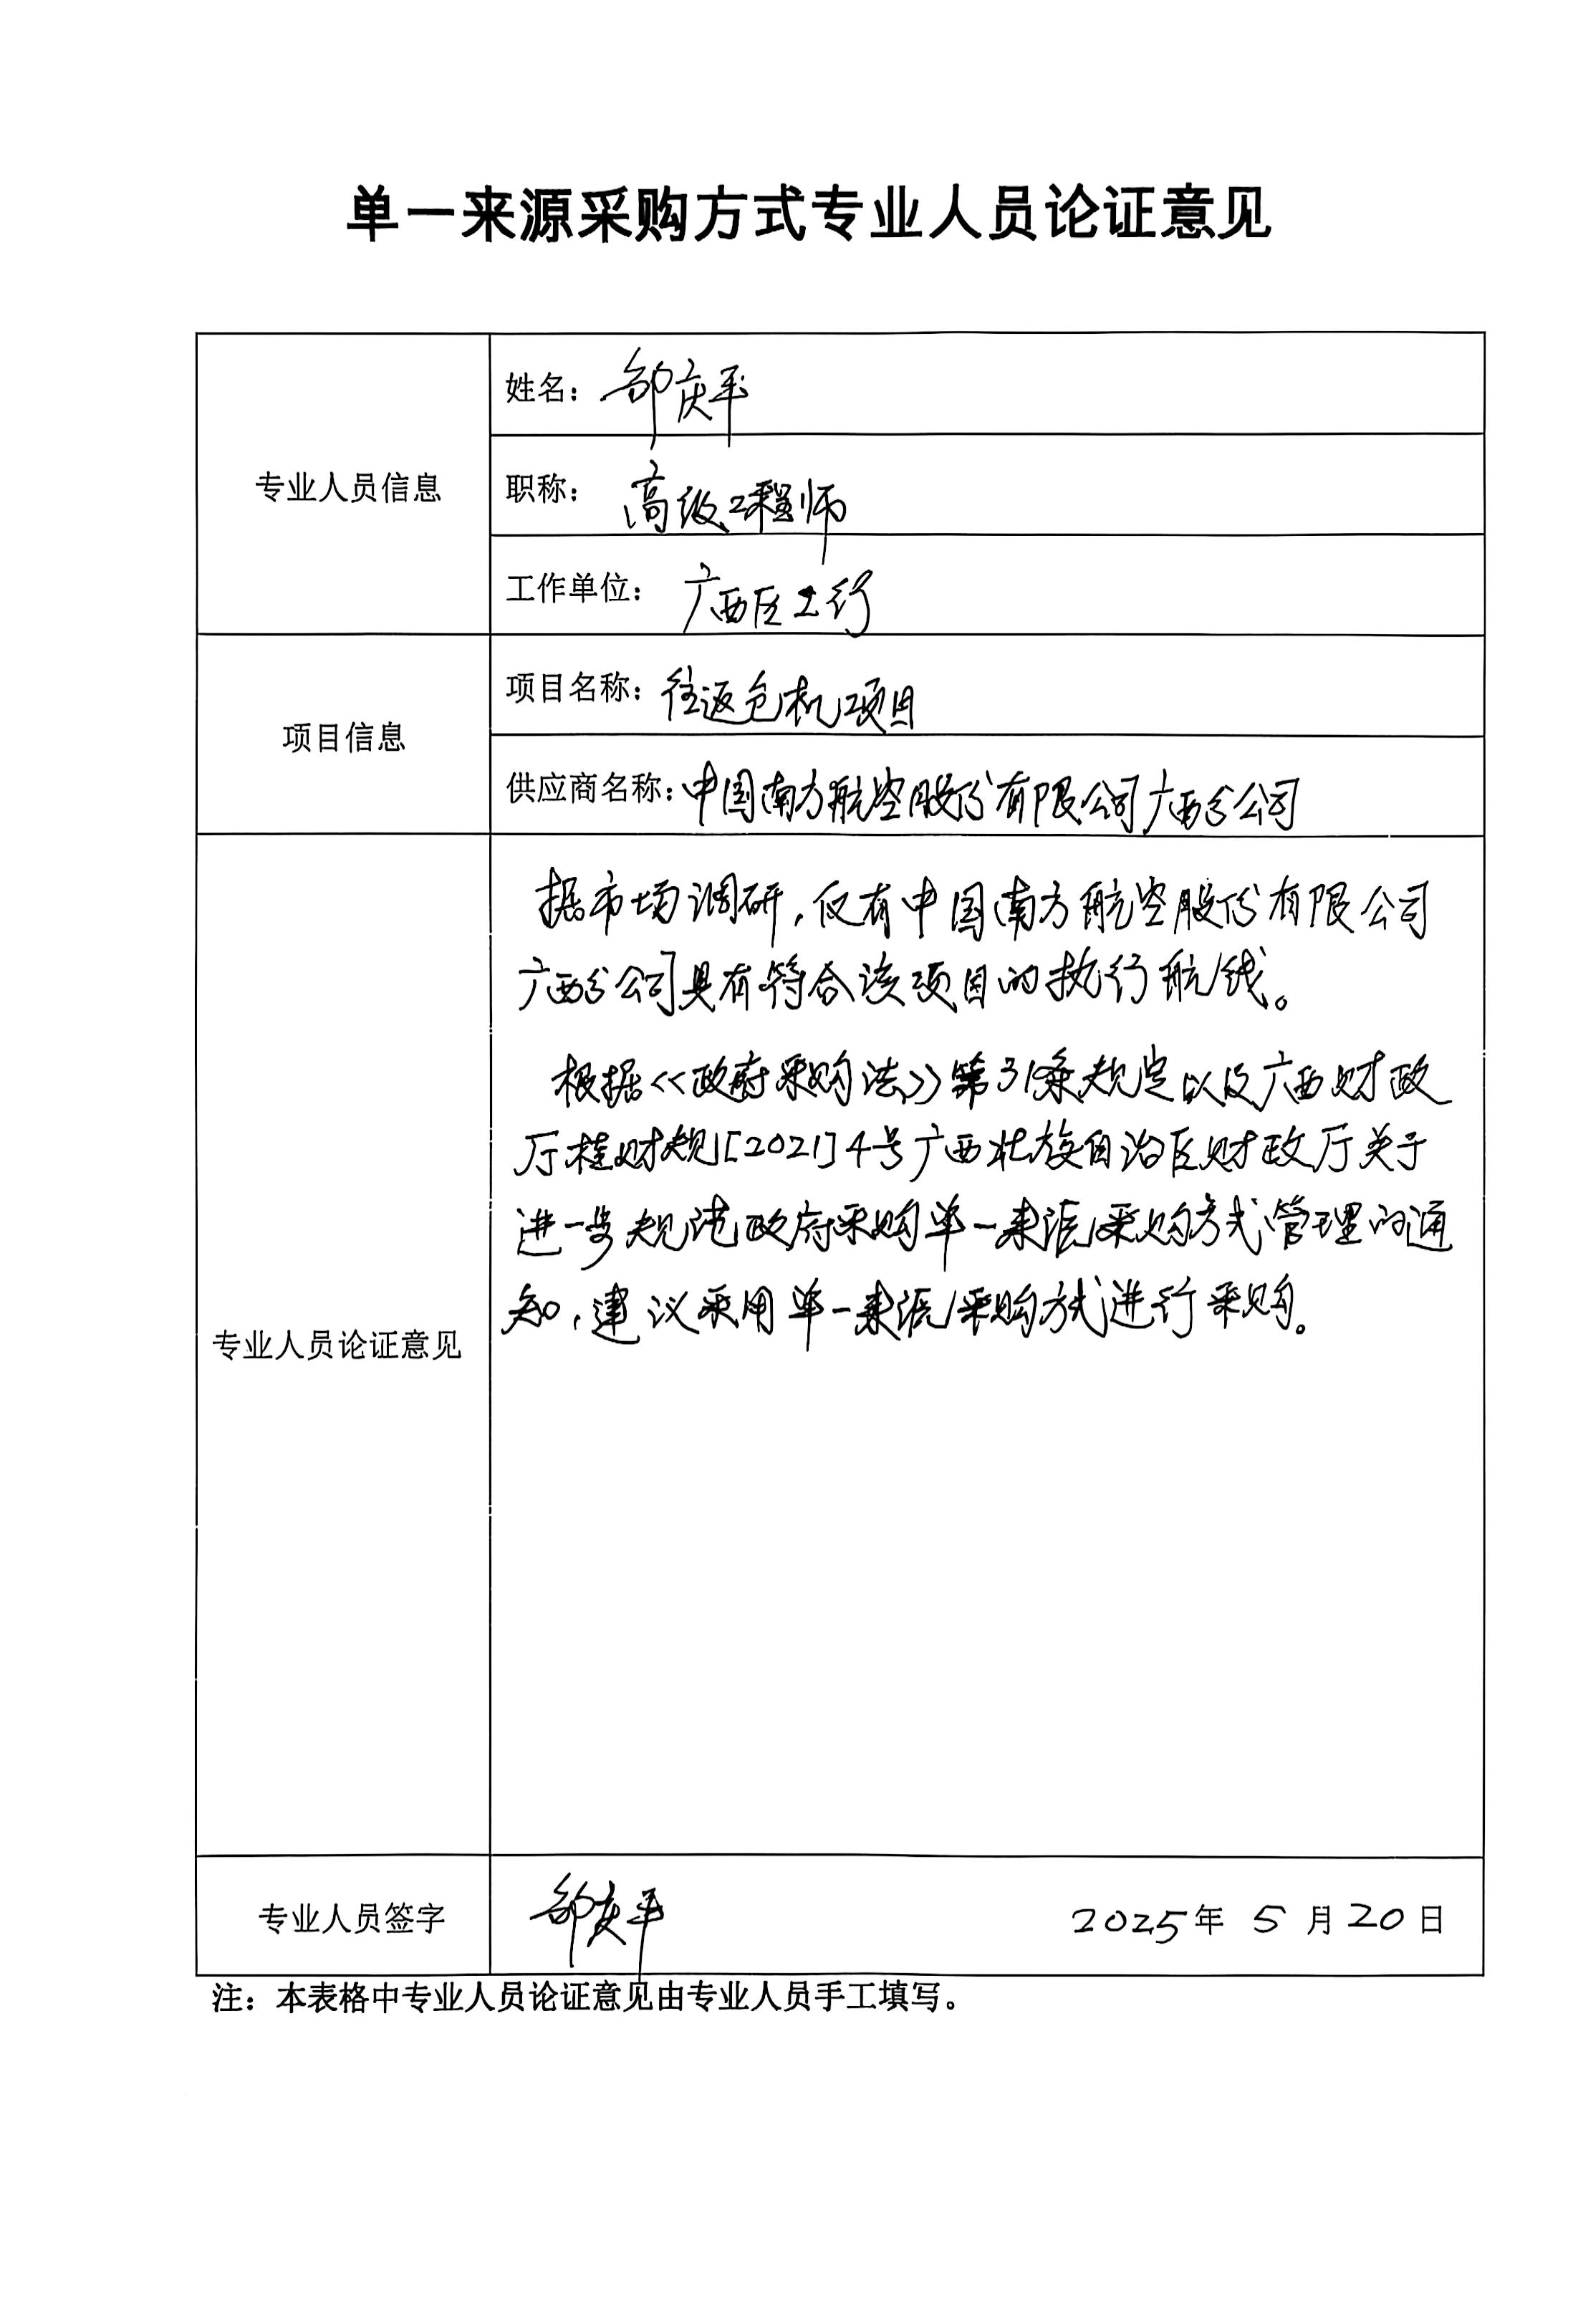 单一来源采购方式专业人员论证意见
专业人员信息
姓名：邹庆平
职称：高级工程师
工作单位：广西区工行
项目信息
项目名称：往返包机项目
供应商名称：中国南方航空股份有限公司广西分公司
专业人员论证意见
据市场调研，仅有中国南方航空股份有限公司
广西分公司具有符合该项目的执行航线。
根据《政府采购法》第31条规定以及广西财政
厅桂财规[2021]4号广西壮族自治区财政厅关于
进一步规范政府采购单一来源采购方式管理的通
知，建议采用单一来源采购方式进行采购。
专业人员签字
邹庆平
2025年 5 月 20 日
注：本表格中专业人员论证意见由专业人员手工填写。